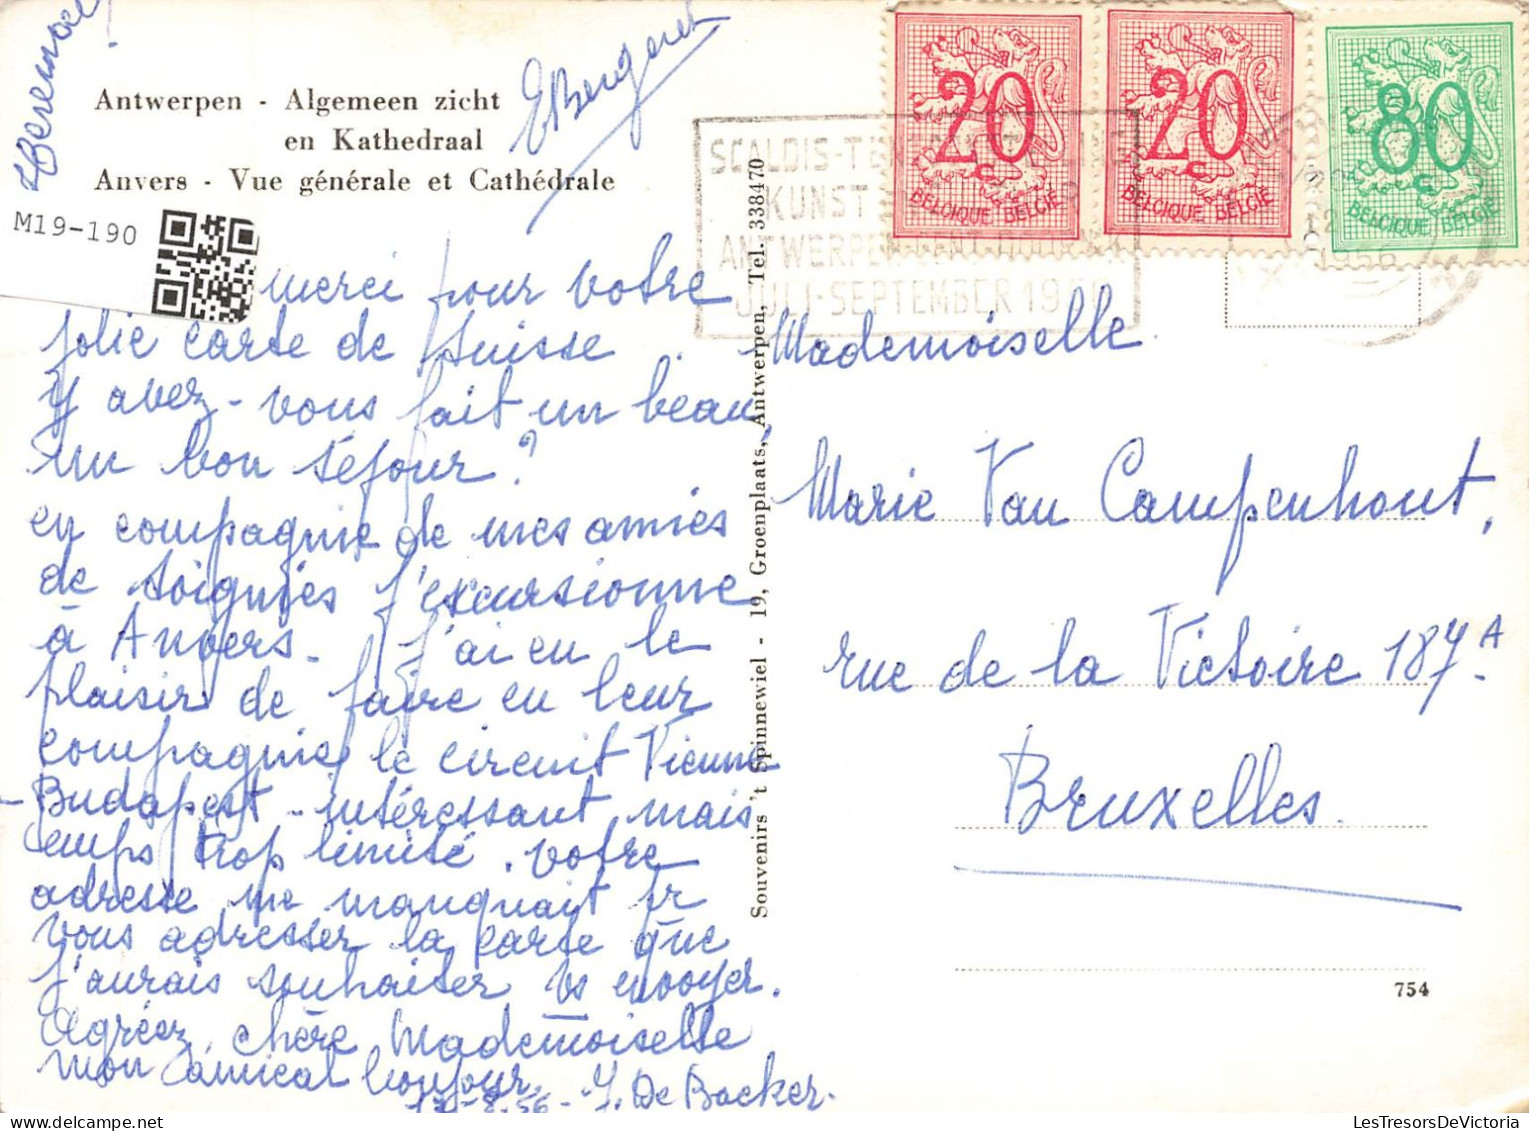 Antwerpen - Algemeen zicht
en Kathedraal
Anvers - Vue générale et Cathédrale
EBergeret
M19-190
merci pour votre
jolie carte de Suisse
y avez-vous fait un beau,
un bon séjour?
en compagnie de mes amies
de Soignies j'excursionne
à Anvers. J'ai eu le
plaisir de faire en leur
compagnie le circuit Vienne
-Budapest - intéressant mais
temps trop limité. votre
adresse me manquait pr
vous adresser la carte que
j'aurais souhaiter vs envoyer.
Agréez, chère Mademoiselle
mon amical bonjour.
17-8.56- J. De Backer.
Souvenirs 't Spinnewiel - 19, Groenplaats, Antwerpen, Tel. 338470
20 c
BELGIQUE BELGIË
20 c
BELGIQUE BELGIË
80 c
BELGIQUE BELGIË
SCALDIS-TEN
KUNST
ANTWERPEN-GENT-DOORNIK
JULI-SEPTEMBER 19
12
1956
Mademoiselle
Marie Van Campenhout,
rue de la Victoire 187A-
Bruxelles.
754
LesTresorsDeVictoria